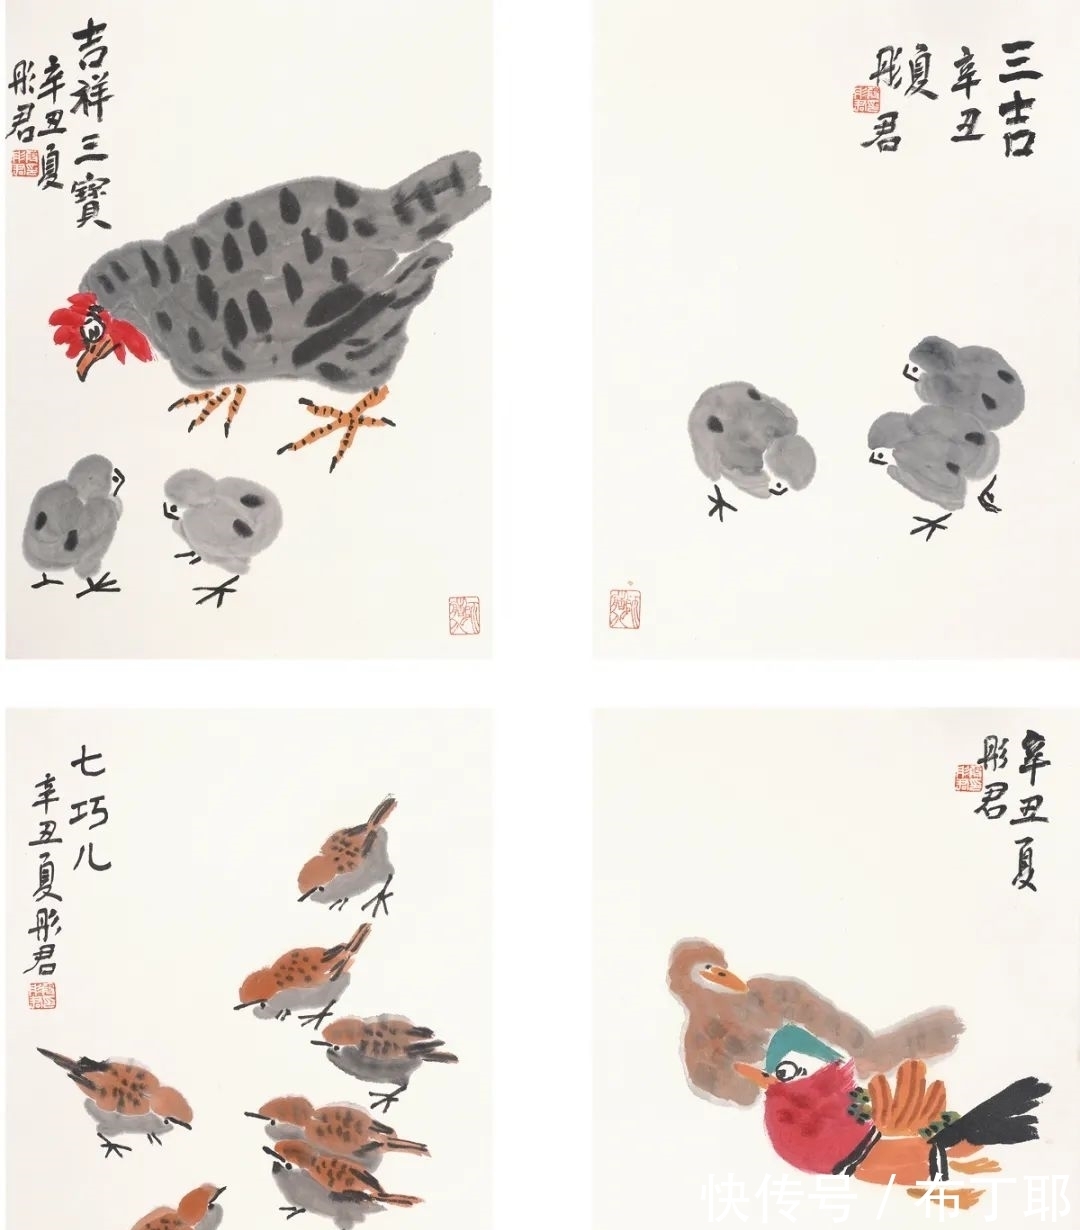 吉祥三寶
辛丑夏
彤君
三吉
辛丑
夏
彤君
七巧儿
辛丑夏彤君
辛丑夏
彤君
快传号 / 布丁耶